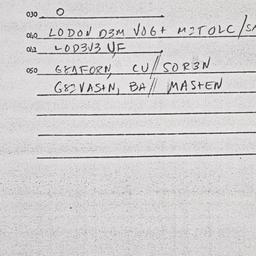 030 O
040 LODON D3M VOGt MITOLC/SA
042 LOD3V3 UF
050 G8AFORN, CU//SOR3N
G8IVAStN, BA// MAStEN